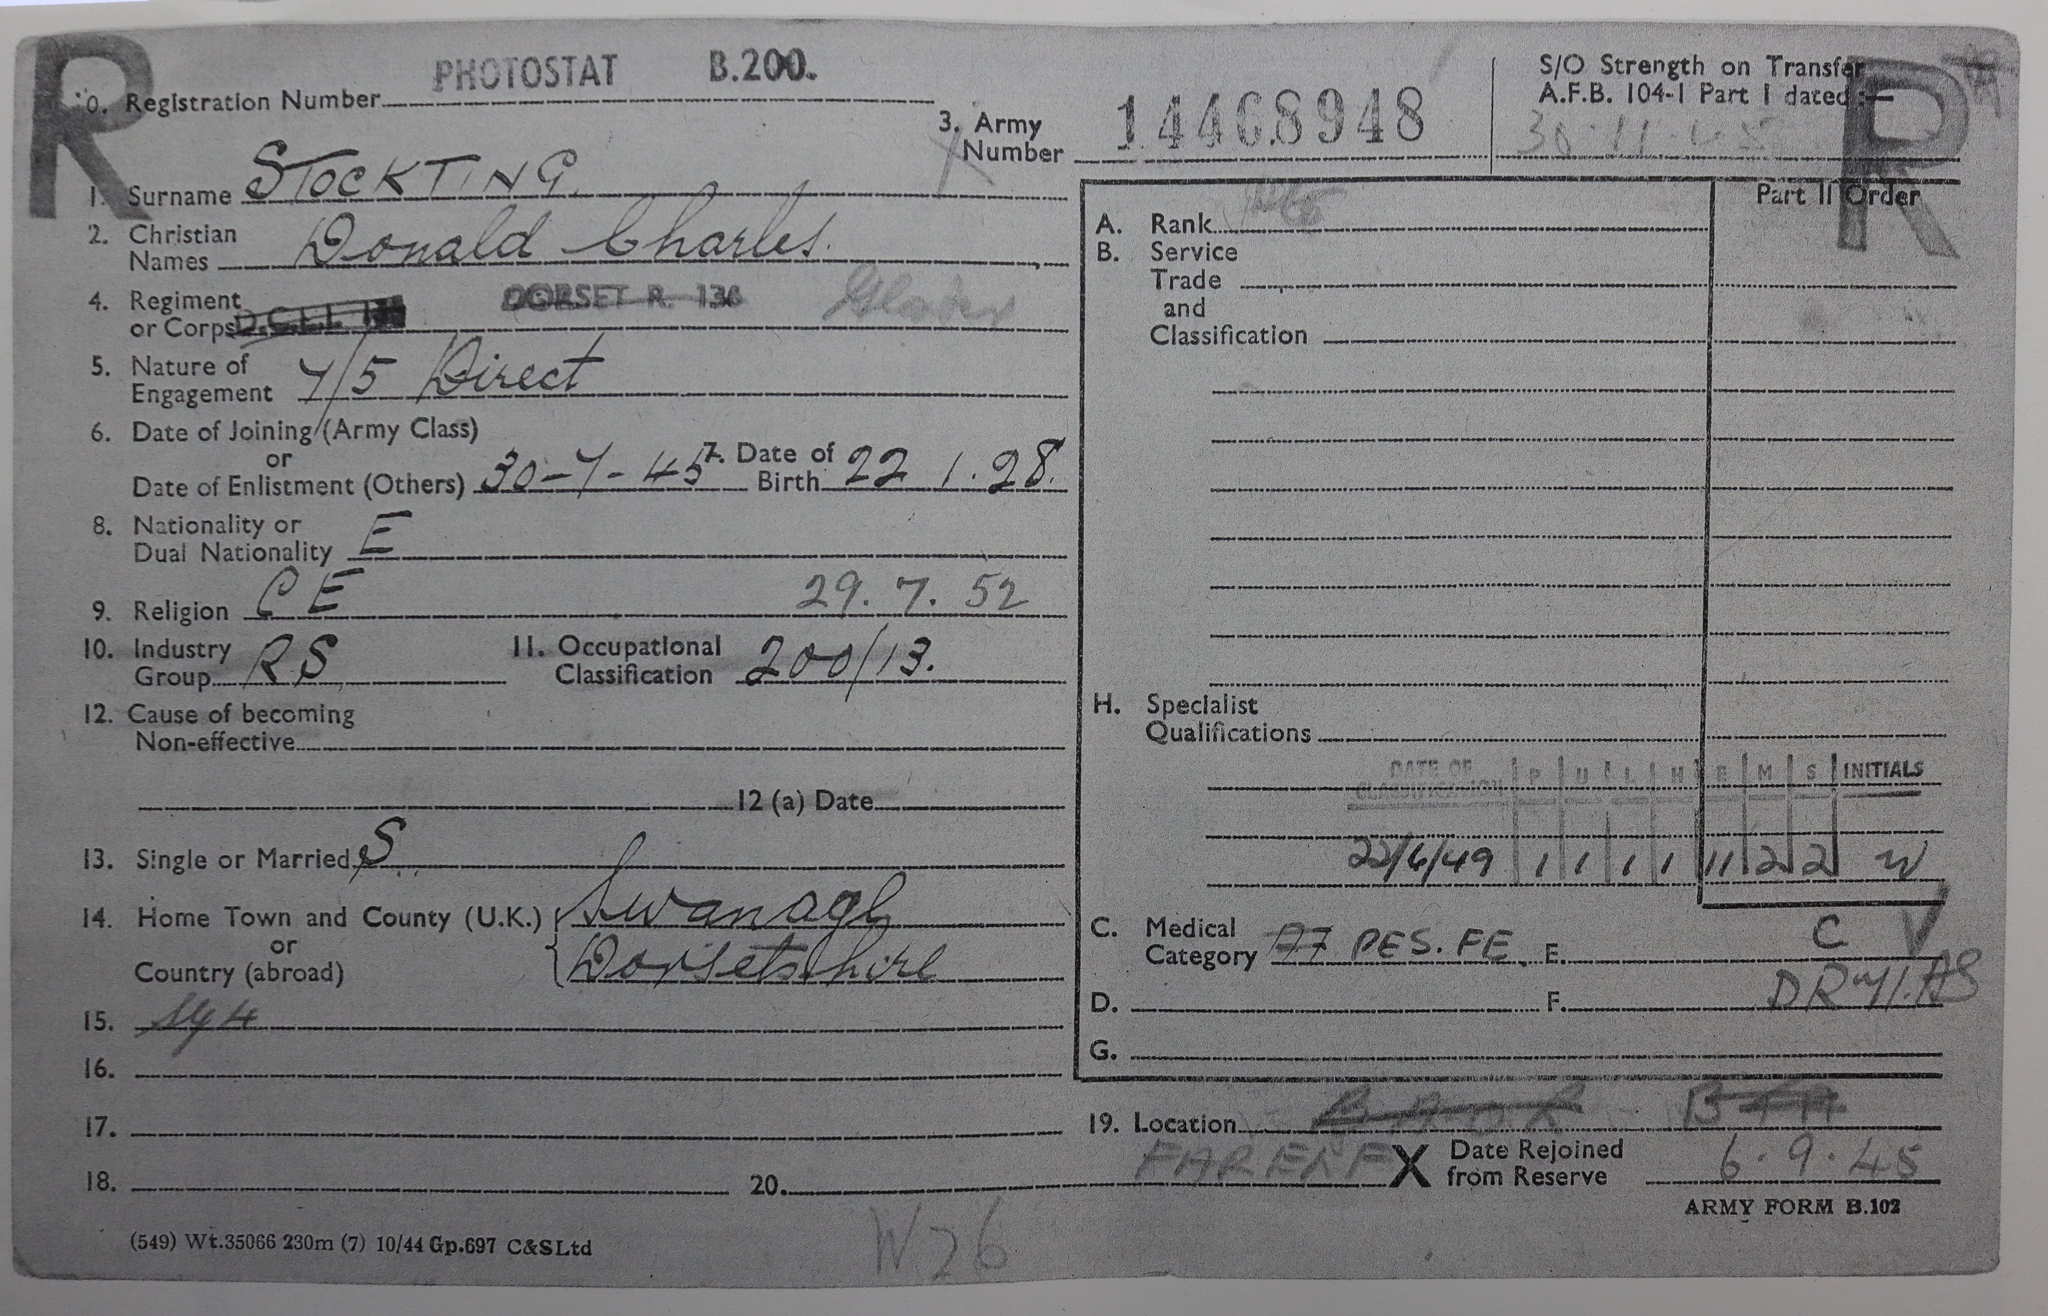 R
PHOTOSTAT B.200.
0. Registration Number
3. Army Number 14468948
S/O Strength on Transfer
A.F.B. 104-1 Part I dated :—
30.11.45
R
1. Surname STOCKTING.
2. Christian Names Donald Charles.
4. Regiment or Corps D.C.L.I. DORSET R. 136 Gloster
5. Nature of Engagement 7/5 Direct
6. Date of Joining (Army Class)
or
Date of Enlistment (Others) 30-7-45 7. Date of Birth 22 1.28.
8. Nationality or Dual Nationality E
9. Religion C E 29.7.52
10. Industry Group RS 11. Occupational Classification 200/13.
12. Cause of becoming Non-effective
12 (a) Date
13. Single or Married S
14. Home Town and County (U.K.) Swanage
or
Country (abroad) Dorsetshire
15.
16.
17.
18.
20.
Part II Order
A. Rank
B. Service
Trade
and
Classification
H. Specialist
Qualifications
DATE OF CLASSIFICATION P U L H E M S INITIALS
22/6/49 1 1 1 1 11 2 2
C. Medical Category A7 PES. FE. E. C V
D. F.
G.
19. Location B A O R
FARELF X Date Rejoined from Reserve 6.9.45
ARMY FORM B.102
(549) Wt.35066 230m (7) 10/44 Gp.697 C&S Ltd
W26